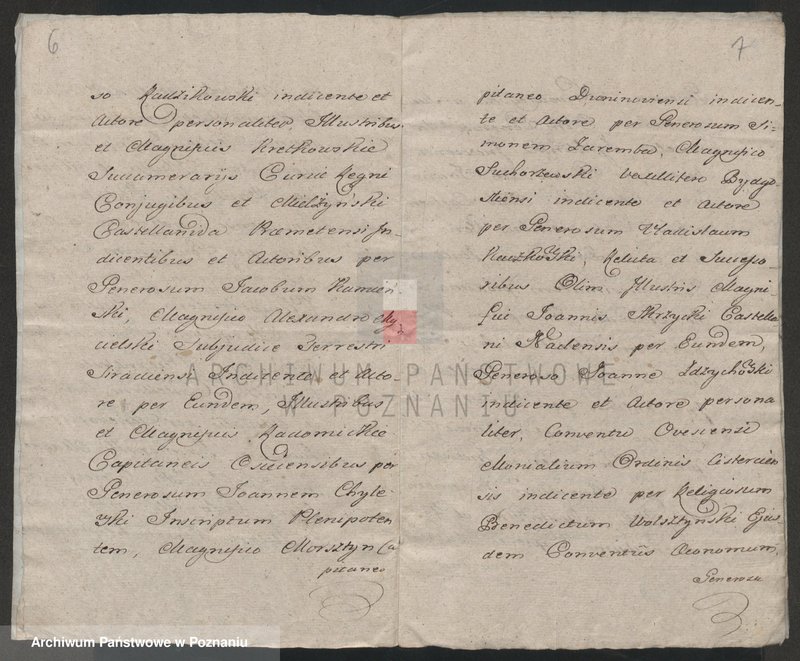 6
so Radzikowski indicente et
Autore personaliter, Illustribus
et Magnificis Kretkowskie
Succamerarijs Curiæ Regni
Conjugibus et Mielżyński
Castellanida Præmetensi In-
dicentibus et Autoribus per
Generosum Jacobum Kamień-
ski, Magnifico Alexandro My
cielski Subjudice Terrestri
Siradiensi Indicente et Auto-
re per Eundem, Illustribus
et Magnificis Radomickie
Capitaneis Osiecensibus per
Generosum Joannem Chyle-
wski Inscriptum Plenipoten
tem, Magnifico Morsztyn Ca
pitaneo
7
pitaneo Droninoviensi indicen-
te et Autore per Generosum Si-
monem Zaremba, Magnifico
Suchorzewski Vexillifero Bydgo
stiensi indicente et Autore
per Generosum Wladislaum
Raczkowski, Relicta et Successo-
ribus Olim Illustris Magni-
fici Joannis Skrzycki Castella
ni Naclensis per Eundem,
Generoso Joanne Zdzychowski
indicente et Autore persona
liter, Conventu Ovesiensi
Monialium Ordinis Cistercien
sis indicente per Religiosum
Benedictum Wolsztyński Ejus
dem Conventûs Oeconomum,
Generosa
ARCHIWUM PAŃSTWOWE
W POZNANIU
Archiwum Państwowe w Poznaniu